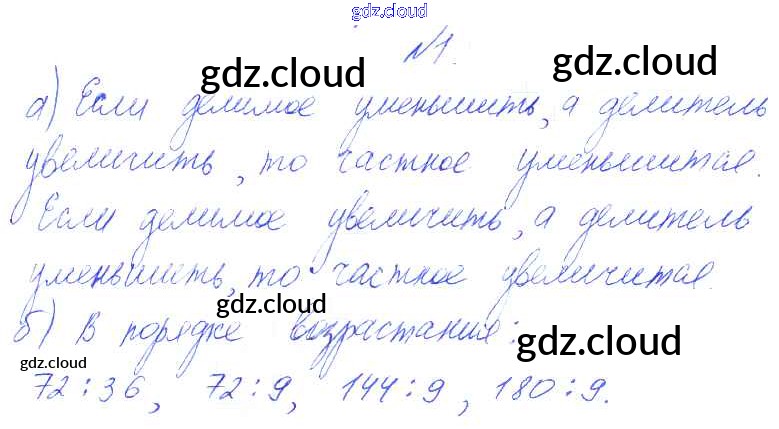 gdz.cloud
№1.
gdz.cloud gdz.cloud
а) Если делимое уменьшить, а делитель
увеличить, то частное уменьшится.
Если делимое увеличить, а делитель
уменьшить, то частное увеличится.
gdz.cloud
б) В порядке возрастания:
gdz.cloud
gdz.cloud
72:36, 72:9, 144:9, 180:9.